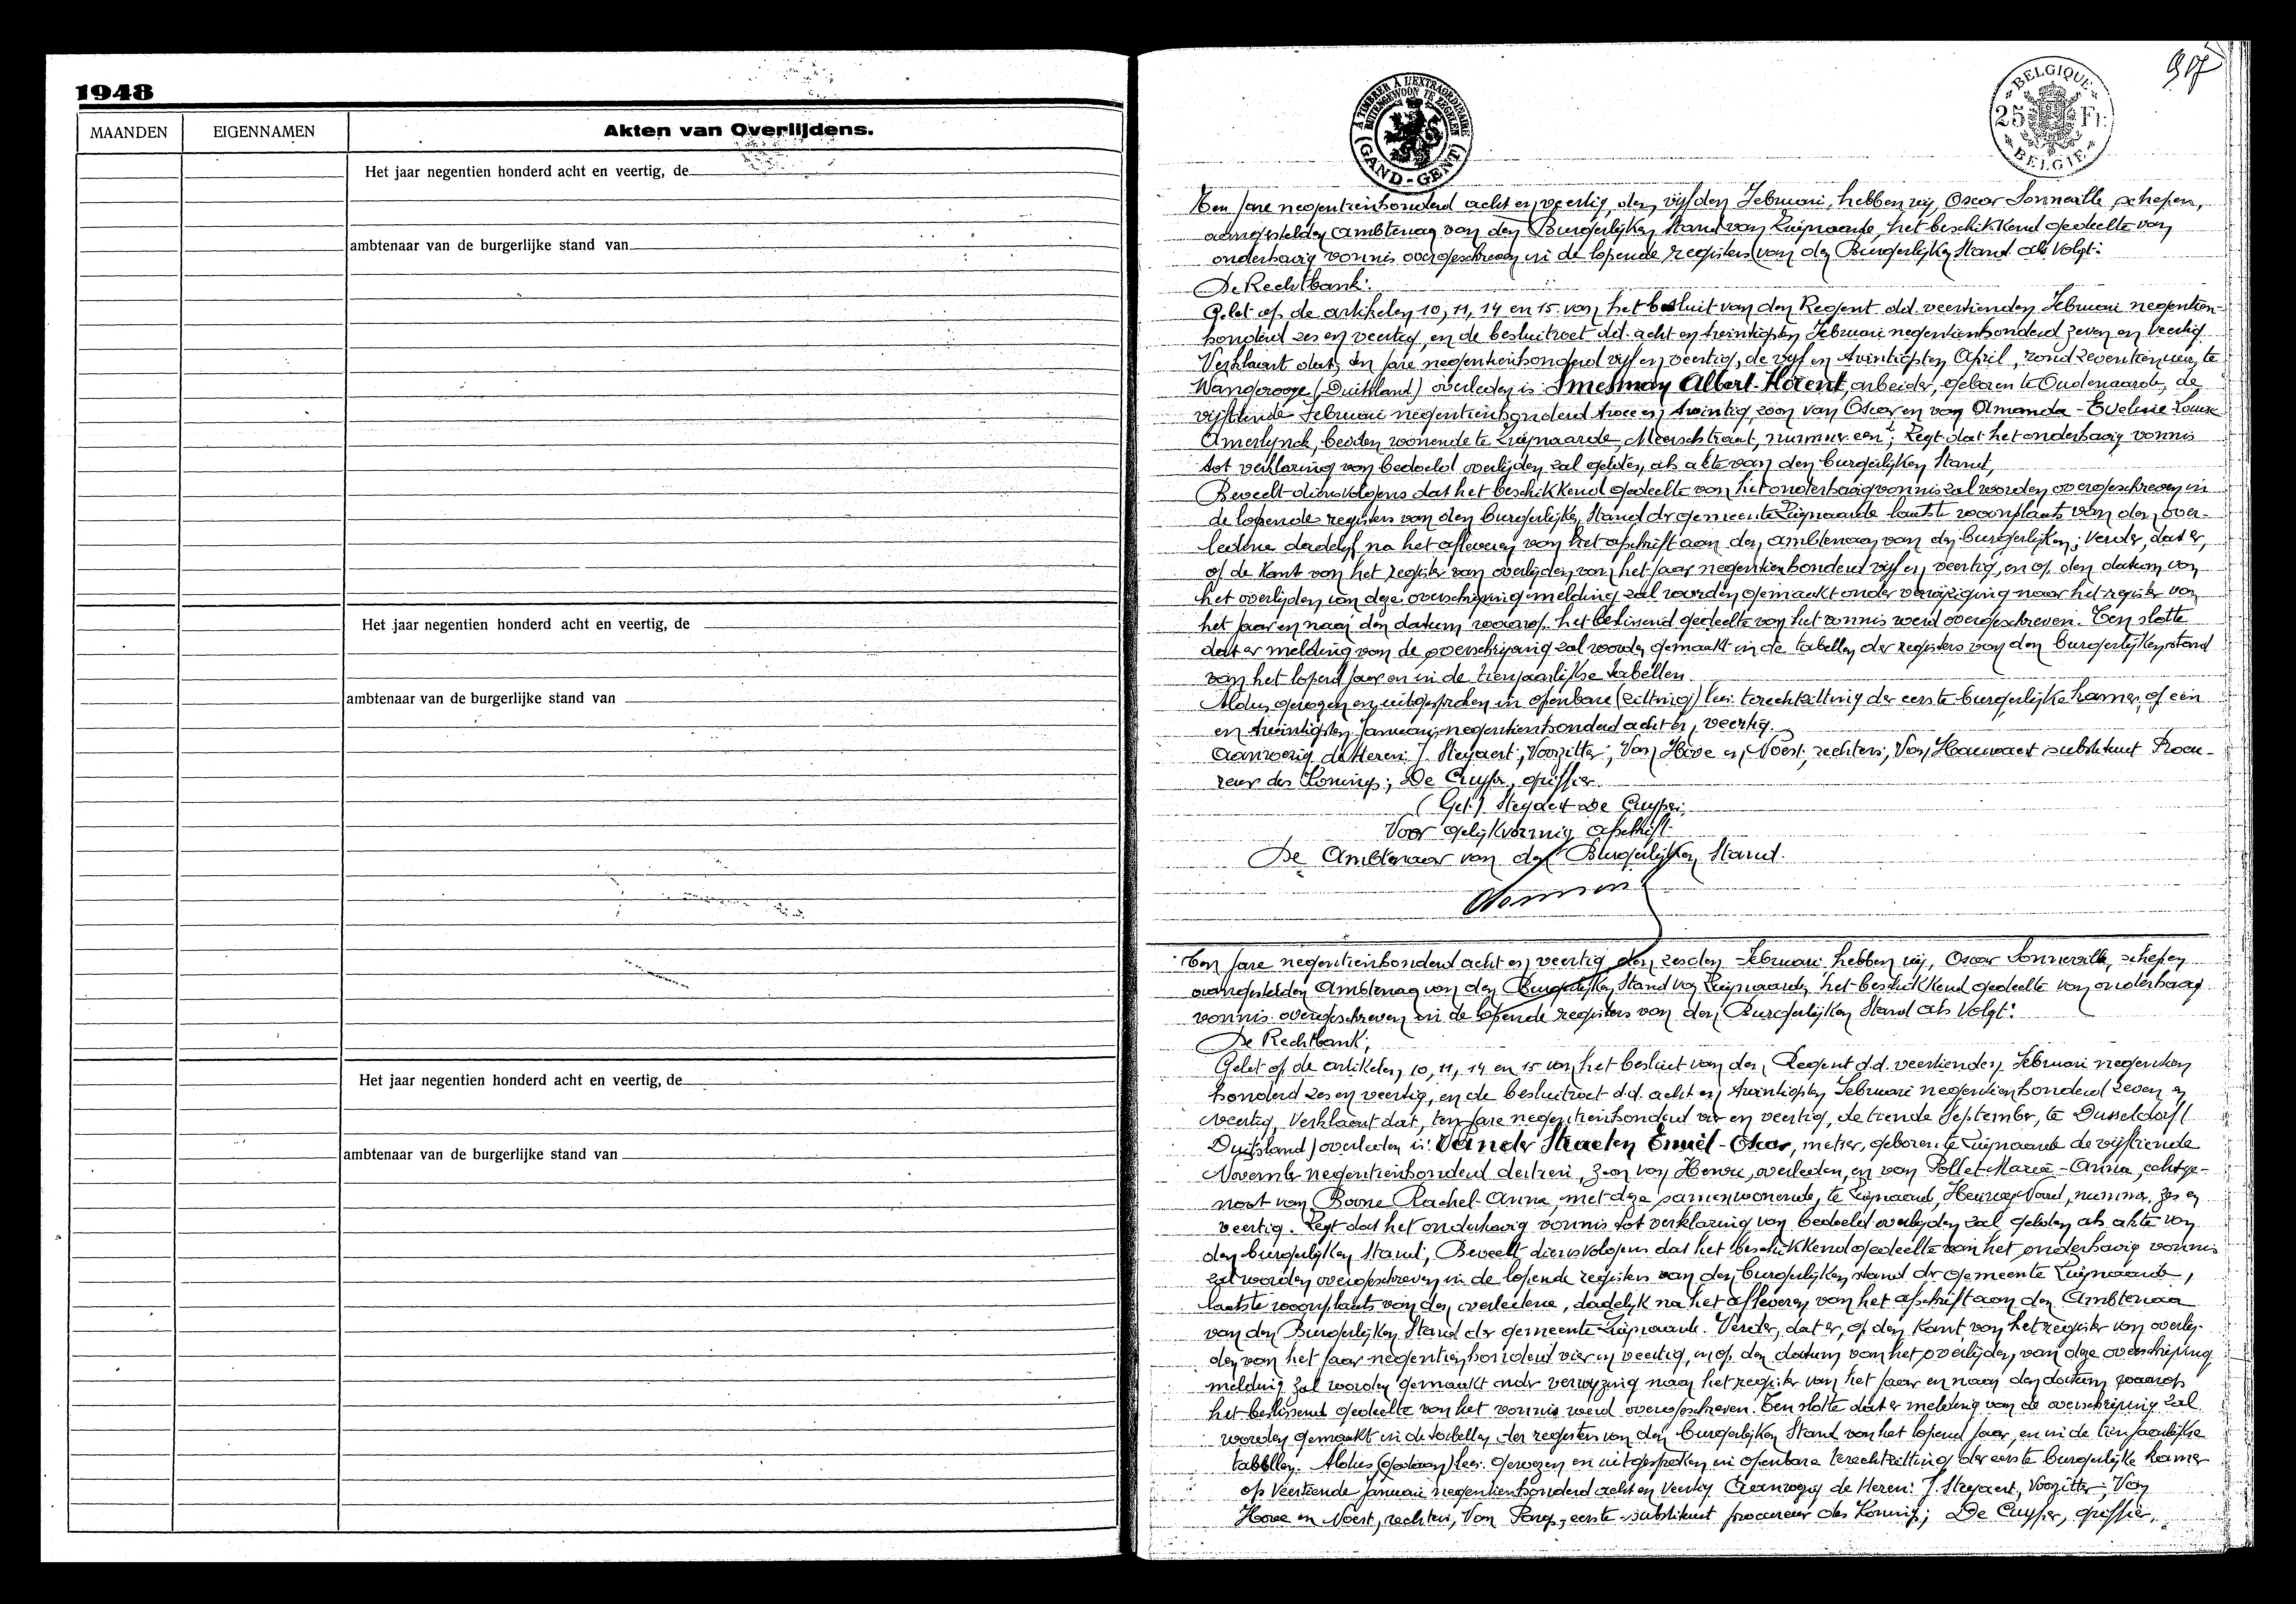 1948
MAANDEN
EIGENNAMEN
Akten van Overlijdens.
Het jaar negentien honderd acht en veertig, de
ambtenaar van de burgerlijke stand van
Het jaar negentien honderd acht en veertig, de
ambtenaar van de burgerlijke stand van
Het jaar negentien honderd acht en veertig, de
ambtenaar van de burgerlijke stand van
A TIMBRER À L'EXTRAORDINAIRE
BUITENGEWOON TE ZEGELEN
(GAND-GENT)
BELGIQUE
25 Fr.
BELGIE
Ten jare negentienhonderd acht en veertig, den vijfden Februari, hebben wij, Oscar Sonneville, schepen,
aangestelden Ambtenaar van den Burgerlijken Stand van Zwijnaarde, het beschikkend gedeelte van
onderhavig vonnis overgeschreven in de lopende registers van den Burgerlijken Stand als volgt:
De Rechtbank:
Gelet op de artikelen 10, 11, 14 en 15 van het besluit van den Regent d.d. veertienden Februari negentien-
honderd zes en veertig, en de besluitwet d.d. acht en twintigsten Februari negentienhonderd zeven en veertig
Verklaart dat, ten jare negentienhonderd vijf en veertig, de vijf en twintigsten April, rond zeventien uur, te
Wangerooge (Duitsland) overleden is: Smesman Albert-Florent, arbeider, geboren te Oudenaarde, de
vijftiende Februari negentienhonderd twee en twintig, zoon van Oscar en van Amanda-Eveline-Louise
Amerlynck, beiden wonende te Zwijnaarde, Meerschstraat, nummer een; Zegt dat het onderhavig vonnis
tot verklaring van bedoeld overlijden zal gelden als akte van den burgerlijken Stand,
Beveelt dienvolgens dat het beschikkend gedeelte van het onderhavig vonnis zal worden overgeschreven in
de lopende registers van den burgerlijken Stand der gemeente Zwijnaarde laatste woonplaats van den over-
ledene dadelijk na het afleveren van het afschrift aan den ambtenaar van den burgerlijken; Verder, dat er,
op de kant van het register van overlijden van het jaar negentienhonderd vijf en veertig, en op den datum van
het overlijden van deze overschrijving melding zal worden gemaakt onder verwijzing naar het register van
het jaar en naar den datum waarop het beslissend gedeelte van het vonnis werd overgeschreven. Ten slotte
dat er melding van de overschrijving zal worden gemaakt in de tabellen der registers van den burgerlijken stand
van het lopend jaar en in de tienjaarlijkse tabellen.
Aldus gewezen en uitgesproken in openbare (zitting) lees: terechtzitting der eerste burgerlijke kamer op een
en twintigsten Januari negentienhonderd acht en veertig.
Aanwezig de Heren: J. Steyaert, Voorzitter; Van Hove en Noest, rechters; Van Hauwaert substituut Procu-
reur des Konings; De Cuyper, griffier.
(Get.) Steyaert De Cuyper.
Voor gelijkvormig afschrift.
De Ambtenaar van den Burgerlijken Stand.
Ten jare negentienhonderd acht en veertig, den zesden Februari hebben wij, Oscar Sonneville, schepen
aangestelden Ambtenaar van den Burgerlijken Stand van Zwijnaarde, het beschikkend gedeelte van onderhavig
vonnis overgeschreven in de lopende registers van den Burgerlijken Stand als volgt:
De Rechtbank;
Gelet op de artikelen 10, 11, 14 en 15 van het besluit van den Regent d.d. veertienden Februari negentien
honderd zes en veertig, en de besluitwet d.d. acht en twintigsten Februari negentienhonderd zeven en
veertig, Verklaart dat, ten jare negentienhonderd vier en veertig, de tiende September, te Dusseldorf (
Duitsland) overleden is: Van der Straeten Emiel-Oscar, metser, geboren te Zwijnaarde de vijftiende
November negentienhonderd dertien, zoon van Henri, overleden, en van Pollet Maria-Anna, echtge-
noot van Boone Rachel-Anna, met deze samenwonende, te Zwijnaarde, nummer zes en
veertig. Zegt dat het onderhavig vonnis tot verklaring van bedoeld overlijden zal gelden als akte van
den burgerlijken Stand; Beveelt dienvolgens dat het beschikkend gedeelte van het onderhavig vonnis
zal worden overgeschreven in de lopende registers van den burgerlijken stand der gemeente Zwijnaarde,
laatste woonplaats van den overledene, dadelijk na het afleveren van het afschrift aan den Ambtenaar
van den Burgerlijken Stand der gemeente Zwijnaarde. Verder, dat er, op den kant van het register van overlij-
den van het jaar negentienhonderd vier en veertig, en op den datum van het overlijden, van deze overschrijving
melding zal worden gemaakt onder verwijzing naar het register van het jaar en naar den datum waarop
het beslissend gedeelte van het vonnis werd overgeschreven. Ten slotte dat er melding van de overschrijving zal
worden gemaakt in de tabellen der registers van den burgerlijken Stand van het lopend jaar, en in de tienjaarlijkse
tabellen. Aldus (gedaan) lees: gewezen en uitgesproken in openbare terechtzitting der eerste burgerlijke kamer
op veertiende Januari negentienhonderd acht en veertig Aanwezig de Heren: J. Steyaert, Voorzitter; Van
Hove en Noest, rechters, Van eerste-substituut procureur des Konings; De Cuyper, griffier.